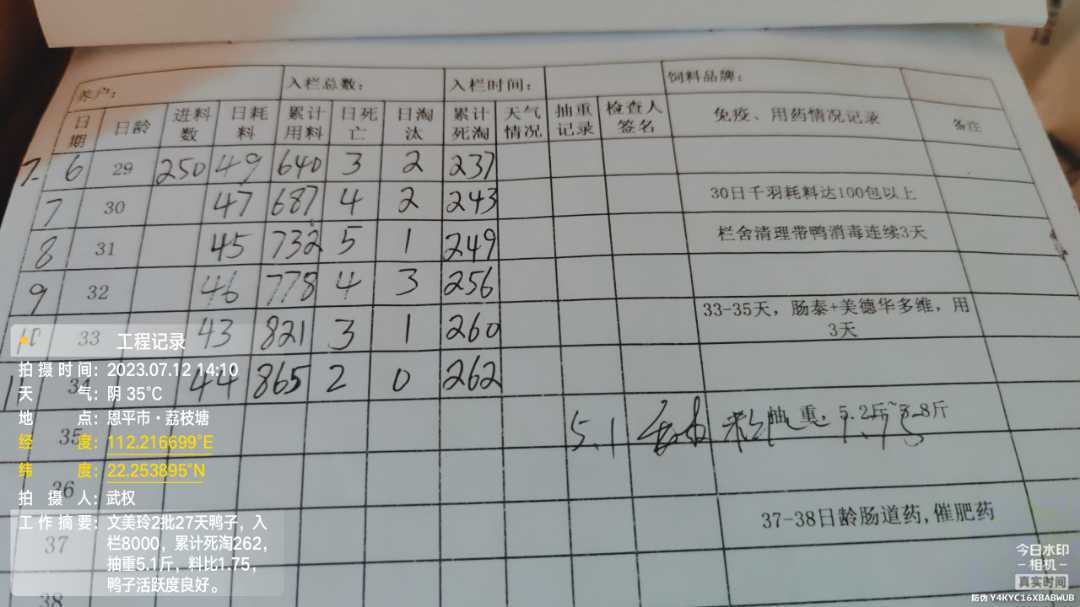 养户： 入栏总数： 入栏时间： 饲料品牌：
日期 日龄 进料数 日耗料 累计用料 日死亡 日淘汰 累计死淘 天气情况 抽重记录 检查人签名 免疫、用药情况记录 备注
7. 6 29 250 49 640 3 2 237
7 30 47 687 4 2 243 30日千羽耗料达100包以上
8 31 45 732 5 1 249 栏舍清理带鸭消毒连续3天
9 32 46 778 4 3 256
10 33 43 821 3 1 260 33-35天，肠泰+美德华多维，用3天
11 34 44 865 2 0 262
35 5.1 抽重：5.2斤~5.8斤
36
37 37-38日龄肠道药,催肥药
38
工程记录
拍摄时间：2023.07.12 14:10
天气：阴 35℃
地点：恩平市·荔枝塘
经度：112.216699°E
纬度：22.253895°N
拍摄人：武权
工作摘要：文美玲2批27天鸭子，入
栏8000，累计死淘262，
抽重5.1斤，料比1.75，
鸭子活跃度良好。
今日水印
-相机-
真实时间
防伪 Y4KYC16XBABWUB